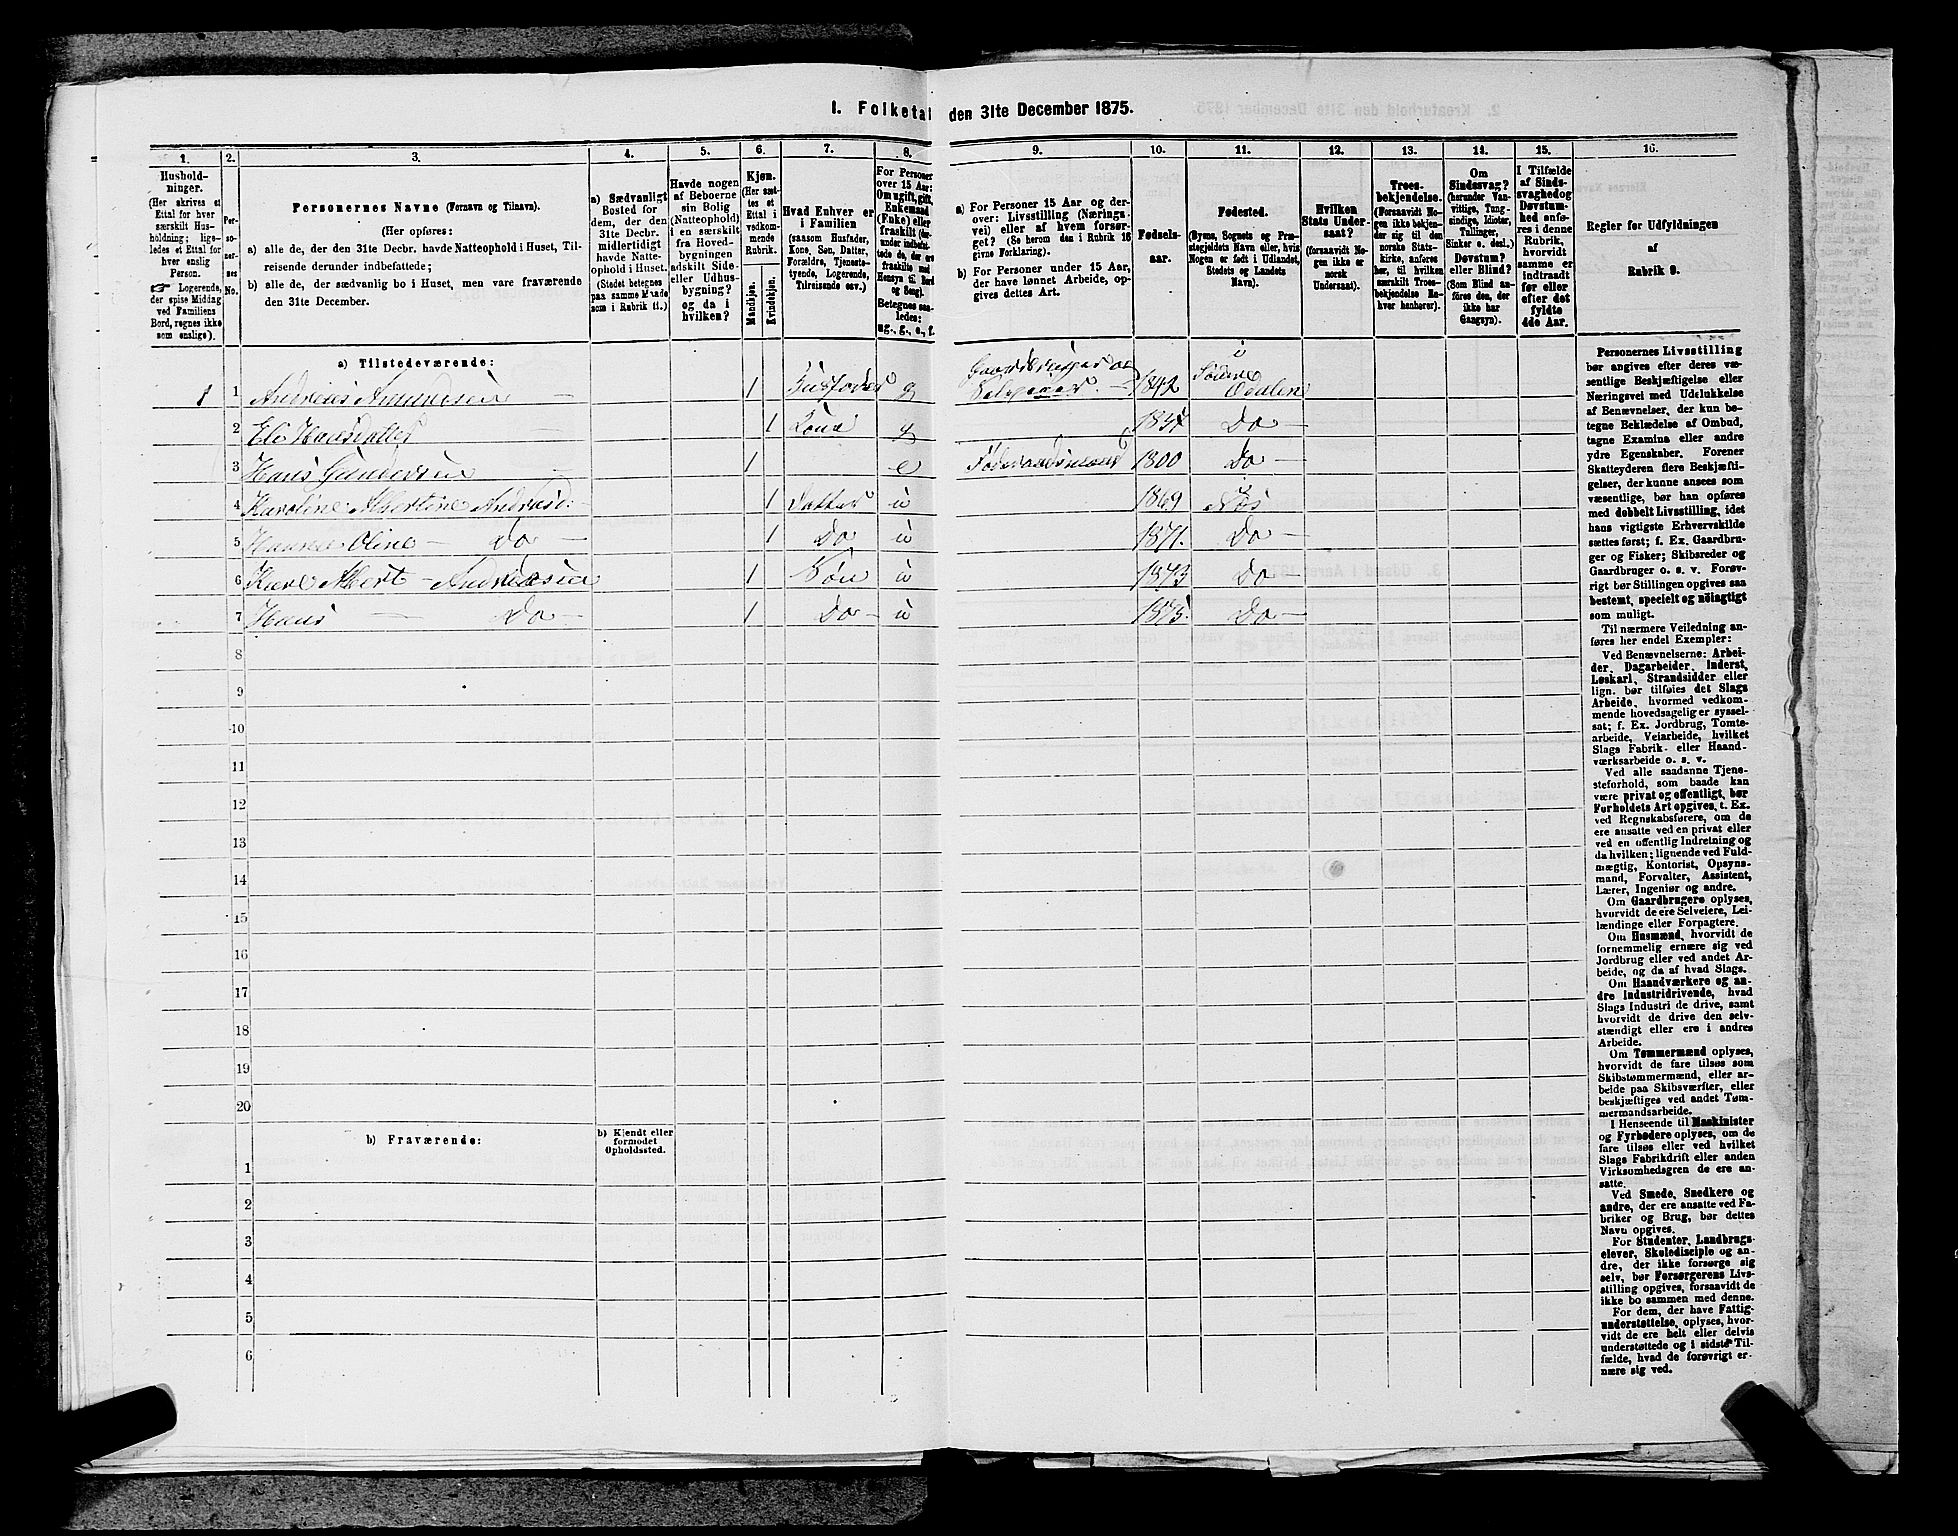 1. Folketal den 31te December 1875.
1.
2.
3.
4.
5.
6.
7.
8.
9.
10.
11.
12.
13.
14.
15.
16.
Husholdninger.
(Her skrives et
Ettal for hver
særskilt Husholdning; ligeledes
et Ettal for
hver enslig
Person.
☞ Logerende,
der spise Middag
ved Familiens
Bord, regnes ikke
som enslige).
Personernes
No.
Personernes Navne (Fornavn og Tilnavn).
(Her opføres:
a) alle de, der den 31te Decbr. havde Natteophold i Huset, Tilreisende
derunder indbefattede;
b) alle de, der sædvanlig bo i Huset, men vare fraværende
den 31te December.
a) Sædvanligt
Bosted for
dem, der den
31te Decbr.
midlertidigt
havde Natteophold
i Huset.
(Stedet betegnes
paa samme Maade
som i Rubrik 11.)
Havde nogen
af Beboerne
sin Bolig
(Natteophold)
i en særskilt
fra Hovedbygningen
adskilt Side-
eller Udhusbygning?
og da i
hvilken?
Kjøn.
(Her sættes
et Ettal i
vedkommende
Rubrik.
Mandkjøn.
Kvindekjøn.
Hvad Enhver er
i Familien
(saasom Husfader,
Kone, Søn, Datter,
Forældre, Tjenestetyende,
Logerende,
Tilreisende osv.)
For Personer
over 15 Aar:
Om ugift, gift,
Enkemand
(Enke) eller
fraskilt
Betegnes saaledes:
ug., g., e., f.
a) For Personer 15 Aar og derover:
Livsstilling (Næringsvei)
eller af hvem forsørget?
(Se herom den i Rubrik 16
givne Forklaring).
b) For Personer under 15 Aar,
der have lønnet Arbeide, opgives
dettes Art.
Fødselsaar.
Fødested.
(Byens, Sognets og Præstegjeldets
Navn eller, hvis
Nogen er født i Udlandet,
Stedets og Landets
Navn).
Hvilken
Stats Undersaat?
(forsaavidt Nogen
ikke er
norsk
Undersaat).
Troesbekjendelse.
(Forsaavidt Nogen
ikke bekjender
sig til den
norske Statskirke,
anføres
her, til hvilken
særskilt Troesbekjendelse
Enhver
henhører).
Om
Sindssvag?
(herunder Vanvittige,
Tungsindige,
Idioter,
Tullinger,
Sinker o. desl.)
Døvstum?
eller Blind?
(Som Blind anføres
den, der
ikke har
Gangsyn).
I Tilfælde
af Sindssvaghed
og
Døvstumhed
anføres
i denne
Rubrik,
hvorvidt
samme er
indtraadt
før eller
efter det
fyldte
4de Aar.
Regler for Udfyldningen
af
Rubrik 9.
a) Tilstedeværende:
1 1 Andreas Amundsen — 1 Husfader g Gaardbruger og Selveier — 1842 i Søndre Odalen
2 Eli Hansdatter 1 Kone g 1837 Do —
3 Hans Gundersen 1 e Føderaadsmand 1800 Do —
4 Karoline Albertine Andreasd: 1 Datter u 1869 i Næs
5 Oline — Do — 1 Do u 1871. Do —
6 Karl Albert — Andreasen 1 Søn u 1873 Do —
7 Hans — Do — 1 Do — u 1875. Do —
8
9
10
11
12
13
14
15
16
17
18
19
20
b) Fraværende:
b) Kjendt eller
formodet
Opholdssted.
1
2
3
4
5
6
Personernes Livsstilling
bør angives efter deres væsentlige
Beskjæftigelse eller
Næringsvei med Udelukkelse
af Benævnelser, der kun betegne
Beklædelse af Ombud,
tagne Examina eller andre
ydre Egenskaber. Forener
Skatteyderen flere Beskjæftigelser,
der kunne ansees som
væsentlige, bør han opføres
med dobbelt Livsstilling, idet
hans vigtigste Erhvervskilde
sættes først; f. Ex. Gaardbruger
og Fisker; Skibsreder og
Gaardbruger o. s. v. Forøvrigt
bør Stillingen opgives saa
bestemt, specielt og nöiagtigt
som muligt.
Til nærmere Veiledning anføres
her endel Exempler:
Ved Benævnelserne: Arbeider,
Dagarbeider, Inderst,
Løskarl, Strandsidder eller
lign. bør tilføies det Slags
Arbeide, hvormed vedkommende
hovedsagelig er sysselsat;
f. Ex. Jordbrug, Tomtearbeide,
Veiarbeide, hvilket
Slags Fabrik- eller Haandværksarbeide
o. s. v.
Ved alle saadanne Tjenesteforhold,
som baade kan
være privat og offentligt, bør
Forholdets Art opgives, t. Ex.
ved Regnskabsførere, om de
ere ansatte ved en privat eller
ved en offentlig Indretning og
da hvilken; lignende ved Fuldmægtig,
Kontorist, Opsynsmand,
Forvalter, Assistent,
Lærer, Ingeniør og andre.
Om Gaardbrugere oplyses,
hvorvidt de ere Selveiere, Leilændinge
eller Forpagtere.
Om Husmænd, hvorvidt de
fornemmelig ernære sig ved
Jordbrug eller ved andet Arbeide,
og da af hvad Slags.
Om Haandværkere og andre
Industridrivende, hvad
Slags Industri de drive, samt
hvorvidt de drive den selvstændigt
eller ere i andres
Arbeide.
Om Tømmermænd oplyses,
hvorvidt de fare tilsøs som
Skibstømmermænd, eller arbeide
paa Skibsværfter, eller
beskjæftiges ved andet Tømmermandsarbeide.
I Henseende til Maskinister
og Fyrbødere oplyses, om de
fare tilsøs eller ved hvilket
Slags Fabrikdrift eller anden
Virksomhedsgren de ere ansatte.
Ved Smede, Snedkere og
andre, der ere ansatte ved Fabriker
og Brug, bør dettes
Navn opgives.
For Studenter, Landbrugselever,
Skoledisciple og andre,
der ikke forsørge sig
selv, bør Forsørgerens Livsstilling
opgives, forsaavidt de
ikke bo sammen med denne.
For dem, der have Fattigunderstøttelse,
oplyses, hvorvidt
de ere helt eller delvis
understøttede og i sidste Tilfælde,
hvad de forøvrigt ernære
sig ved.